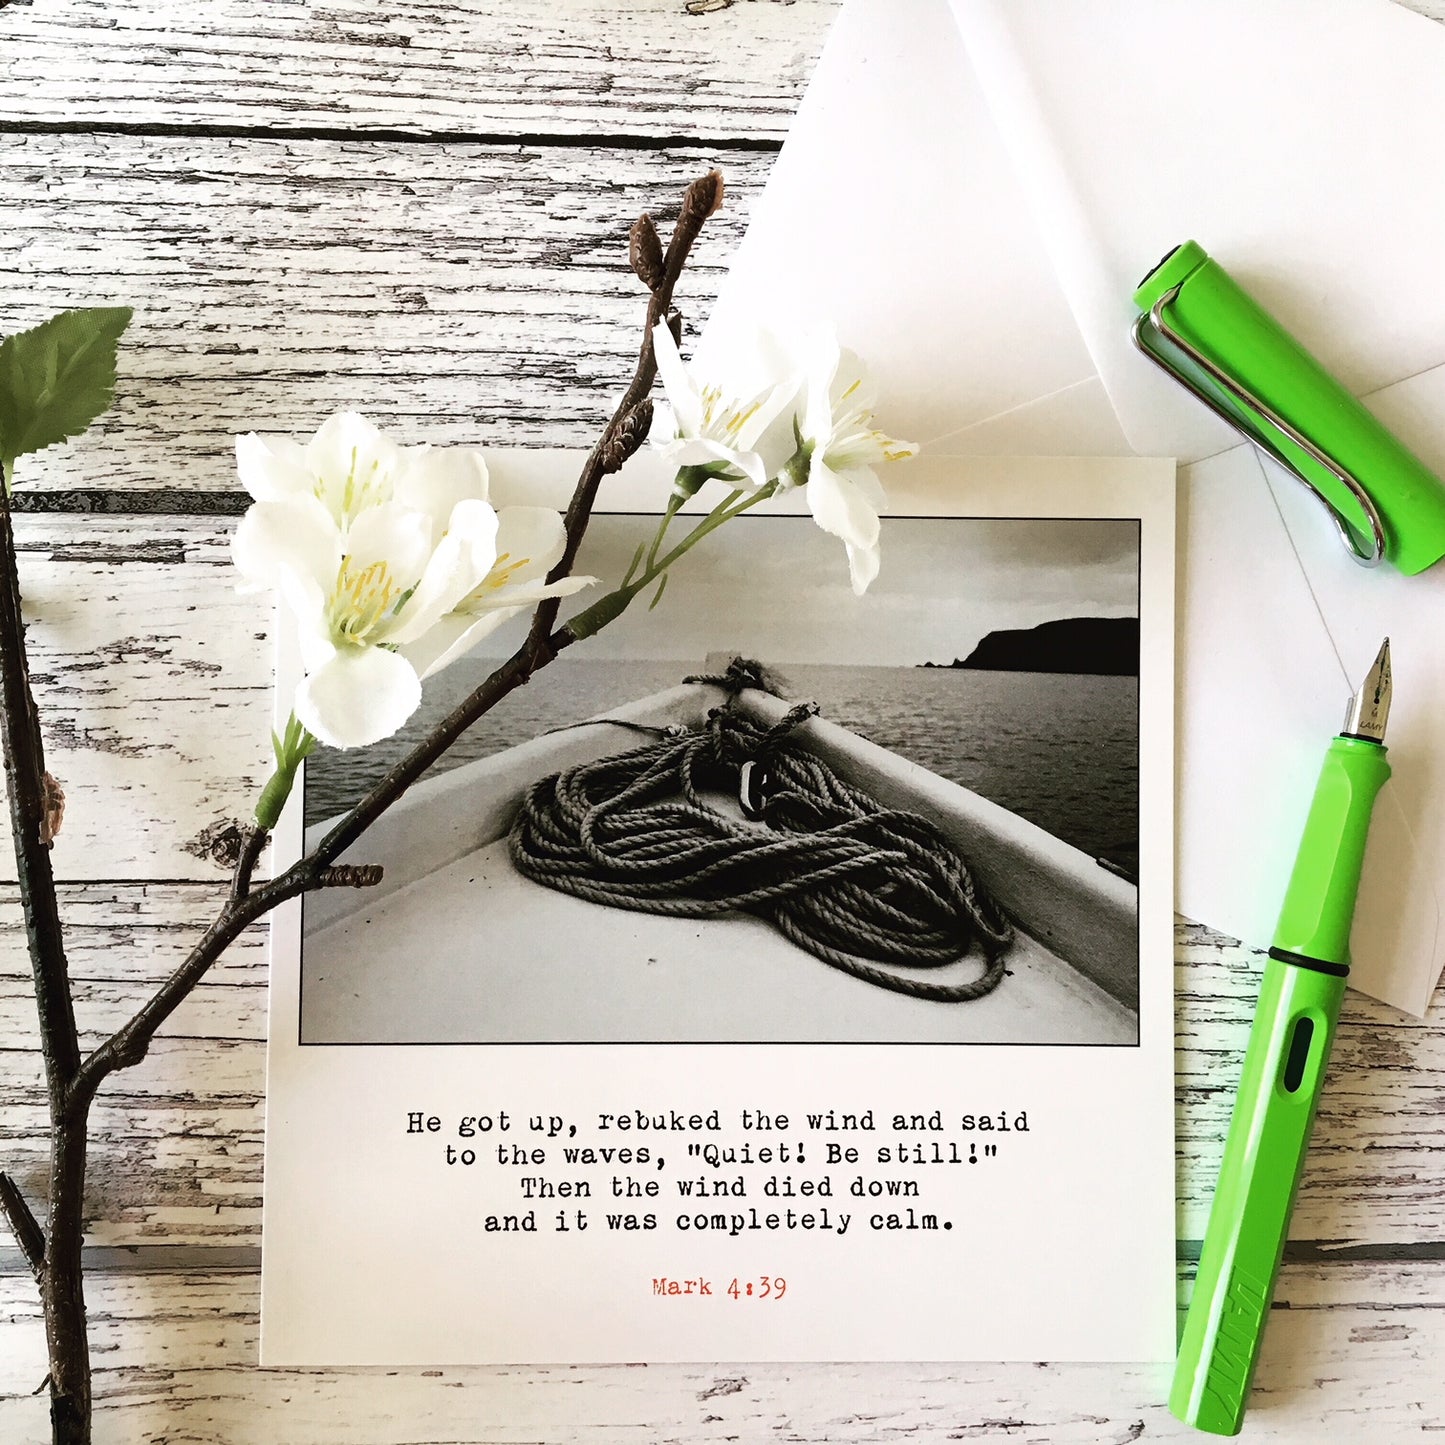 LAMY
He got up, rebuked the wind and said
to the waves, "Quiet! Be still!"
Then the wind died down
and it was completely calm.
Mark 4:39
LAMY